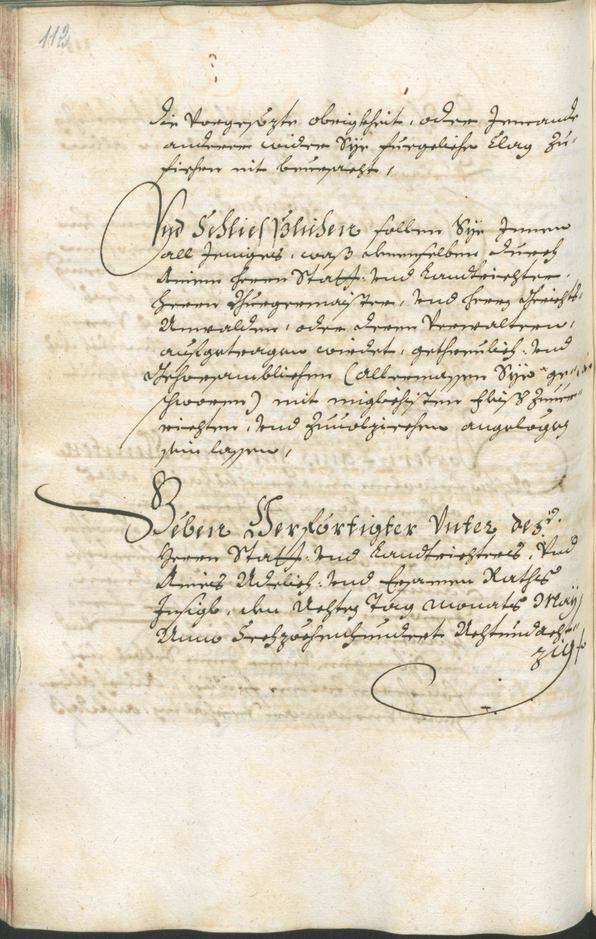 112
die Vorgesözte obrigkheit, oder Jemande
anderen wider Sye fürgeliche Clag zu
fiehren nit beursacht,
Vnd Schliesslichen sollen Sye Jnnen
all Jeniges, waß denenselben, durch
Ainen Herrn Statt: vnd Landtrichter,
Herrn Burgermaister, vnd Herrn Gerichts
Anwalden, oder deren Verwaltern,
aufgetragen wirdet, getreulich: vnd
Gehorsamblichen (allermassen Sye ge-
schworen) mit miglichsten Fleiß zuuer-
richten, vnd zuuolziechen angelegen
sein lassen,
Geben Verförtigter Vnter des
Herrn Statt: vnd Landtrichters, Vnd
Aines Adelich: vnd Ersamen Rathß
Jnsigl, den Achten Tag Monats May
Anno Sechzöchenhundert Achtundacht-
zig